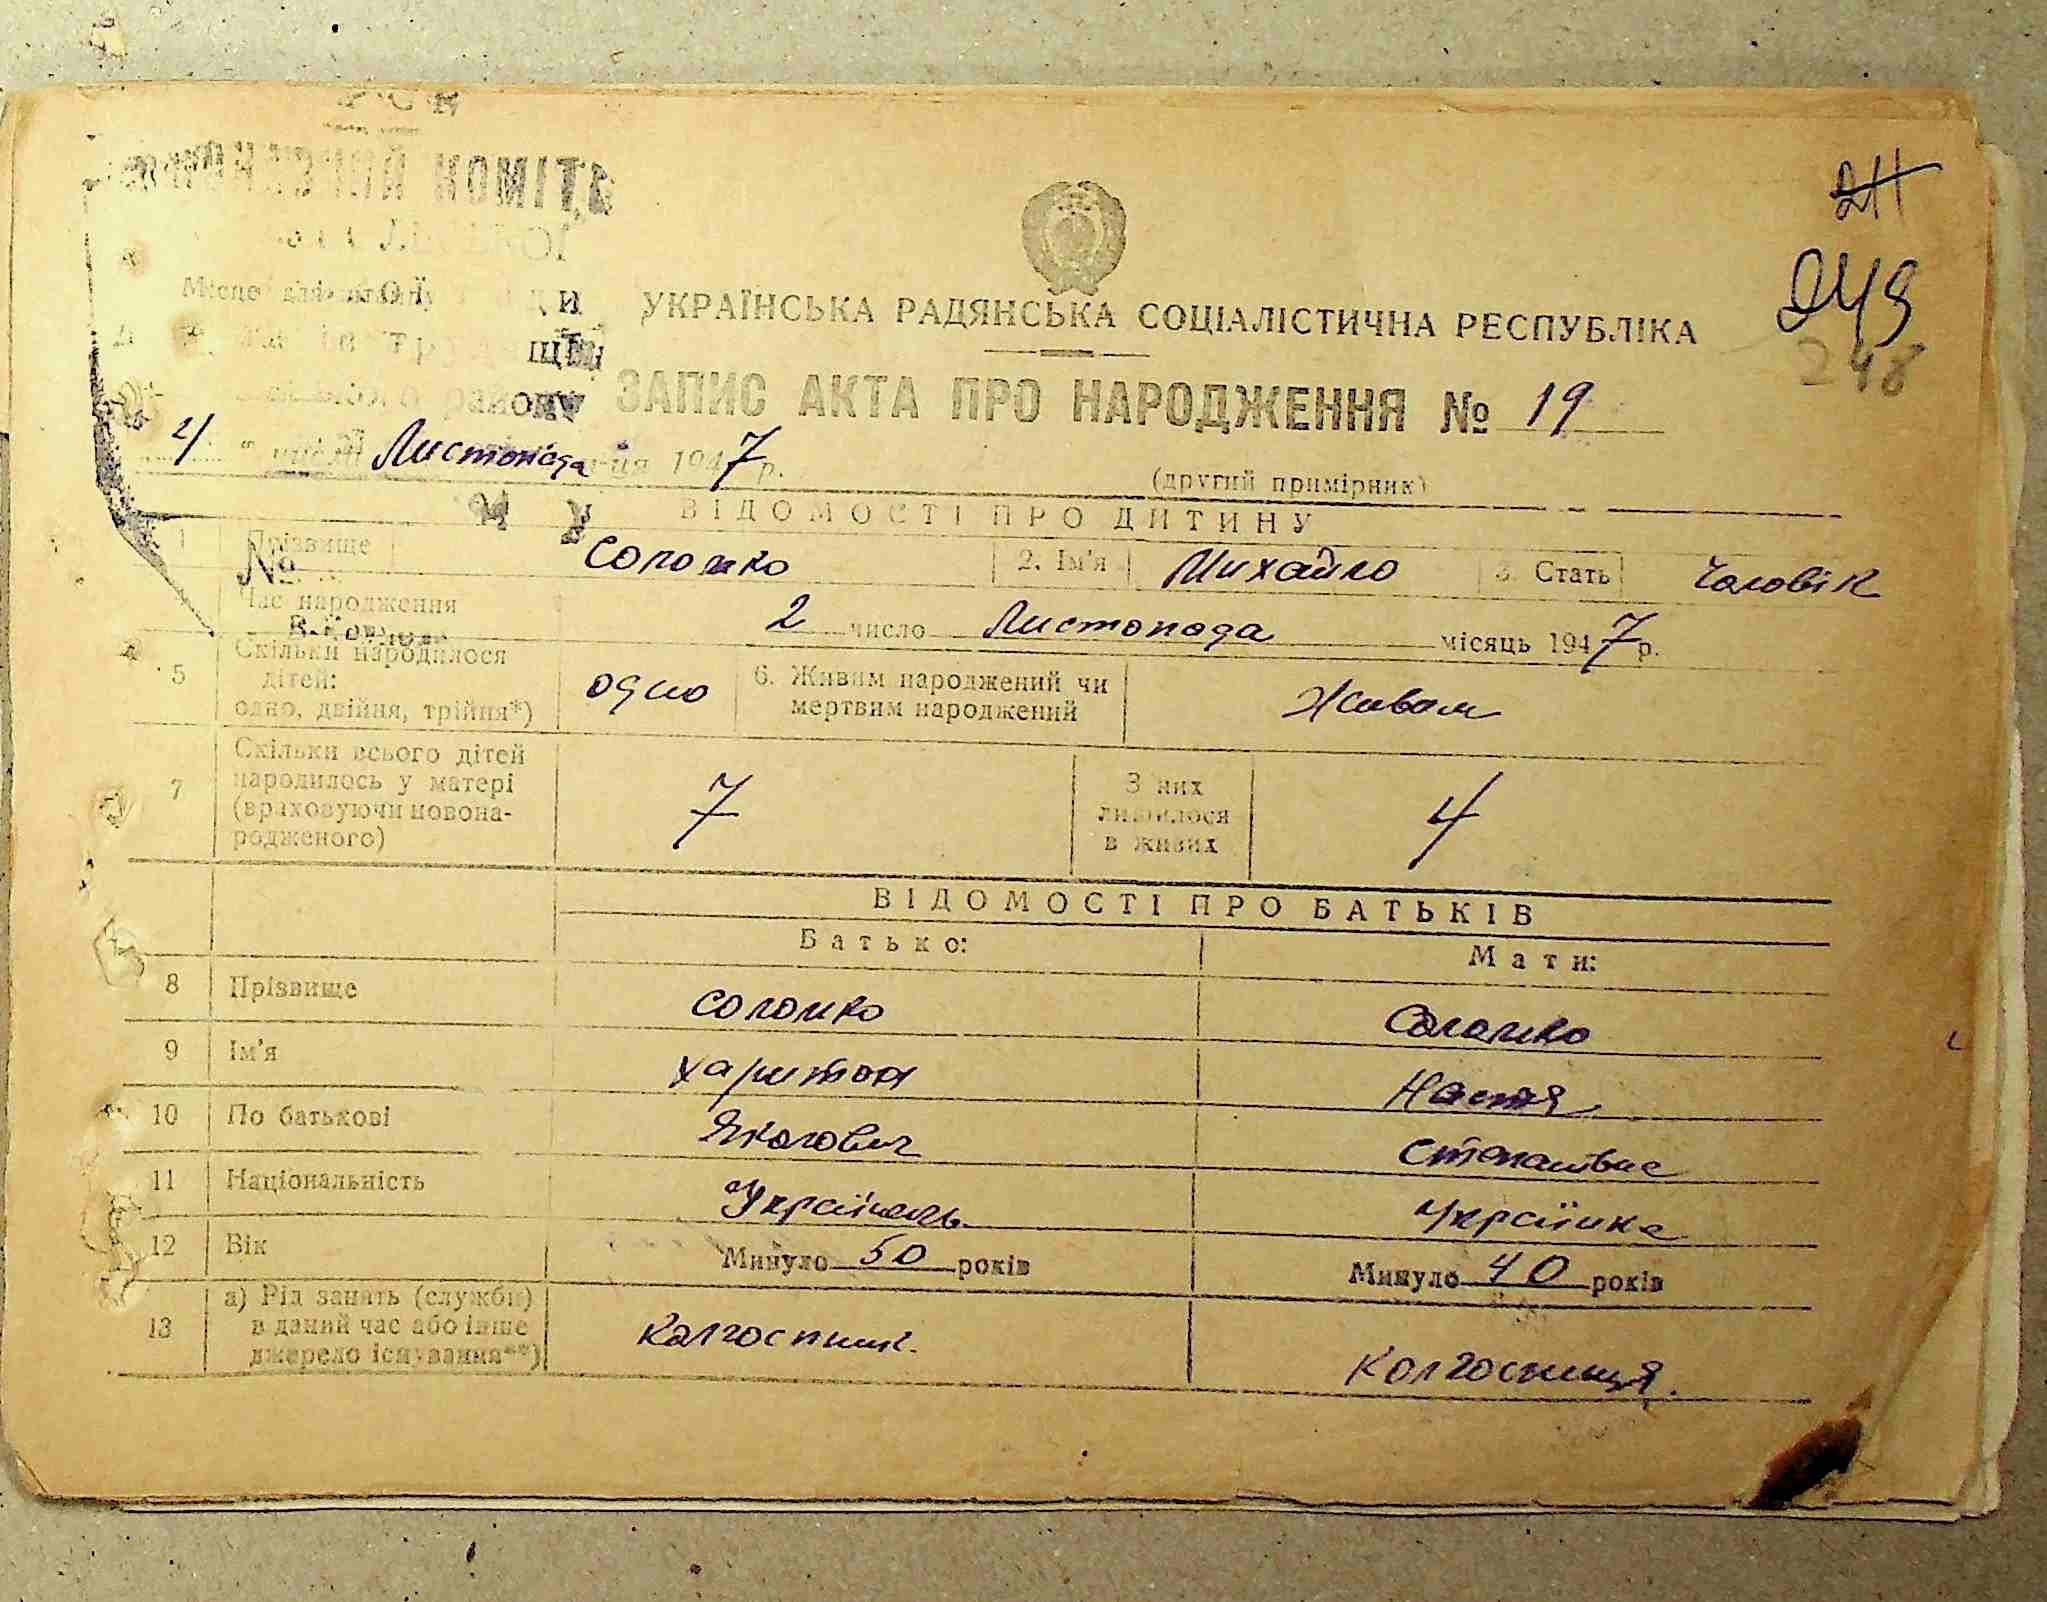 241
248
248
УКРАЇНСЬКА РАДЯНСЬКА СОЦІАЛІСТИЧНА РЕСПУБЛІКА
ЗАПИС АКТА ПРО НАРОДЖЕННЯ № 19
4 Листопада 1947 р.
(другий примірник)
ВІДОМОСТІ ПРО ДИТИНУ
1 Прізвище Соломко 2. Ім'я Михайло 3. Стать Чоловік
Час народження 2 число Листопада місяць 1947 р.
5 Скільки народилося дітей: одно, двійня, трійня*) одно 6. Живим народжений чи мертвим народжений Живом
7 Скільки всього дітей народилось у матері (враховуючи новонародженого) 7 З них лишилося в живих 4
ВІДОМОСТІ ПРО БАТЬКІВ
Батько: Мати:
8 Прізвище Соломко Соломко
9 Ім'я Харитон Настя
10 По батькові Якович Степанівна
11 Національність Українець Українка
12 Вік Минуло 50 років Минуло 40 років
13 а) Рід занять (служби) в даний час або інше джерело існування**) Колгоспник. Колгоспниця.